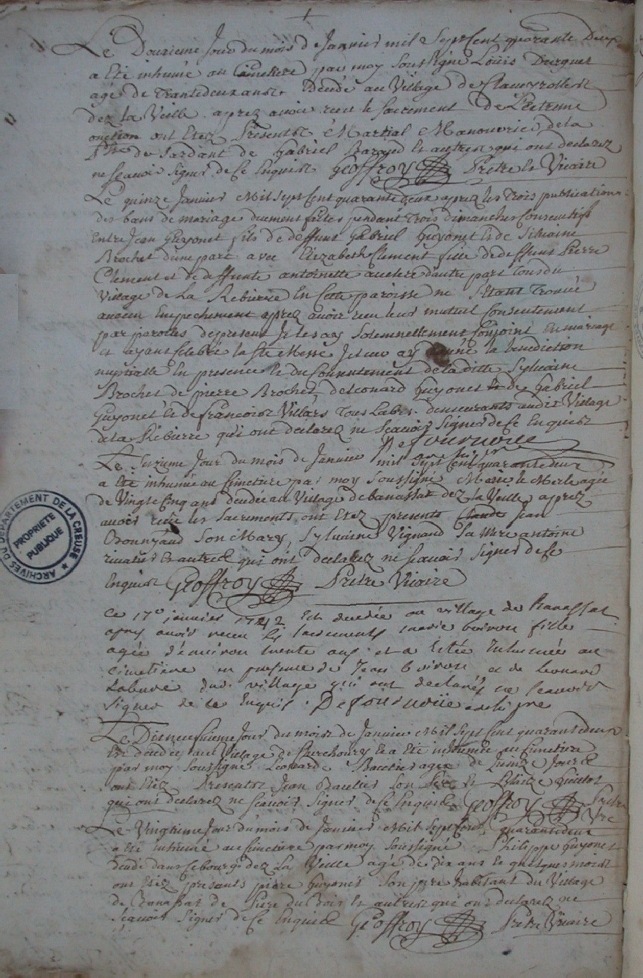 Le Douzieme Jour du mois de Janvier mil Sept Cent quarante Deux
a Eté inhumé au Cimetiere par moy Soussigné Louis
agé de trantedeux ans Décédé au Village de
dez la Veille aprez avoir receu le Sacrement de L'extreme
onction ont Etez Presents Martial Manouvrier de la
de Sardant de Gabriel et autres qui ont declarez
ne Scavoir Signer de Ce Enquis Geoffroy Pretre Vicaire
Le quinze Janvier Mil Sept Cent quarante deux aprez les trois publications
des bans de mariage duement faites pendant trois dimanches Consecutifs
Entre Jean Guyonet fils de deffunt Gabriel Guyonet et de Silvaine
Brochet d'une part avec Elizabeth Clement fille de deffunt Pierre
Clement et de deffunte antoinette d'autre part tous du
Village de La Rebiere En Cette paroisse ne S'etant trouvé
aucun Empechement aprez avoir receu leur mutuel Consentement
par paroles de present Je les ay Solemnellement Conjoint En mariage
et ayant Celebré la Ste Messe Je leur ay donné la benediction
nuptialle En presence et du Consentement de la ditte Sylvaine
Brochet de pierre Brochet de Leonard Guyonet de Gabriel
Guyonet et de francois Villars tous Labrs demeurants audit Village
de la Rebierre qui ont declarez ne Scavoir Signer de Ce Enquis
Defournoue
Le Jour du mois de Janvier mil Sept Cent quarante deux
a été inhumée au Cimetiere par moy Soussigné Marie Merle agée
de Vingt Cinq ans decedée au Village de banassat dez la Veille aprez
avoir receu les Sacrements ont Etez presents Jean
Son Mary Sylvaine Vignaud Sa Mere antoine
et autres qui ont declarez ne Scavoir Signer de Ce
Enquis Geoffroy Pretre Vicaire
ce 17e janvier 1742 Est decedée au village de Banassat
apres avoir receu les Sacrements marie boiron fille
agée d'environ trente ans et a Eté Inhumée au
cimetiere en presence de Jean boiron et de Leonard
Laburé dud. village qui ont declarés ne Scavoir
Signer de ce Enquis Defournoüe
Le Dixneufieme Jour du mois de Janvier Mil Sept Cent quarantedeux
Est decedée au Village de et a Eté inhumée au Cimetiere
par moy Soussigné Leonarde agée de quinze Jours
ont Etez Presents Jean Son et
qui ont declarez ne Scavoir Signer de Ce Enquis Geoffroy Pretre
Vre
Le Vingtieme Jour du mois de Janvier Mil Sept Cent quarantedeux
a été inhumé au Cimetiere par moy Soussigné Philippe Guyonet
decedé dans Ce bourg dez La Veille agé de dix ans et quelques mois
ont Etez presents pierre Guyonet Son pere habitant du Village
de de Pierre Dubois et autres qui ont declarez ne
Scavoir Signer de Ce Enquis Geoffroy Pretre Vicaire
ARCHIVES DU DÉPARTEMENT DE LA CREUSE
PROPRIÉTÉ
PUBLIQUE